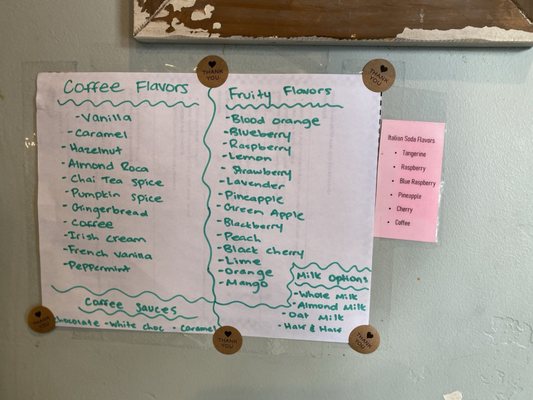 THANK YOU
THANK YOU
Coffee Flavors
-Vanilla
-Caramel
-Hazelnut
-Almond Roca
-Chai Tea Spice
-Pumpkin Spice
-Gingerbread
-Coffee
-Irish Cream
-French Vanilla
-Peppermint
Coffee Sauces
Chocolate -White choc - Caramel
Fruity Flavors
-Blood orange
-Blueberry
-Raspberry
-Lemon
-Strawberry
-Lavender
-Pineapple
-Green Apple
-Blackberry
-Peach
-Black cherry
-Lime
-Orange
-Mango
Milk Options
-Whole Milk
-Almond Milk
-Oat Milk
-Half & Half
Italian Soda Flavors
• Tangerine
• Raspberry
• Blue Raspberry
• Pineapple
• Cherry
• Coffee
THANK YOU
THANK YOU
THANK YOU